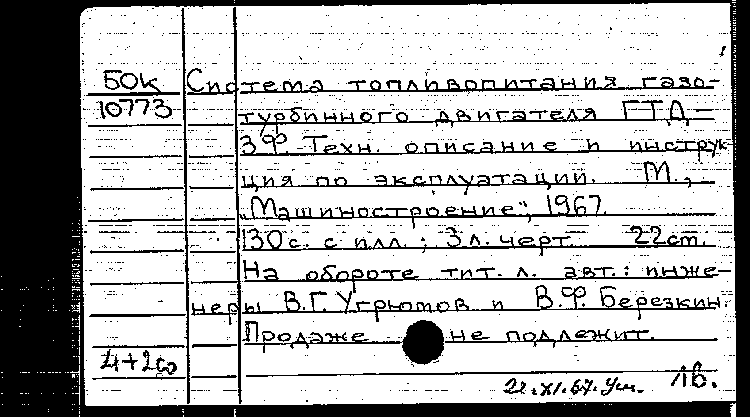 БОК Система топливопитания газо-
10773 турбинного двигателя ГТД-
3Ф. Техн. описание и инструк-
ция по эксплуатации. М.,
"Машиностроение", 1967.
130 с. с илл.; 3 л. черт. 22 см.
На обороте тит. л. авт.: инже-
неры В.Г. Угрюмов и В.Ф. Березкин.
Продаже не подлежит.
4+2со
22.XI.67. 1в.